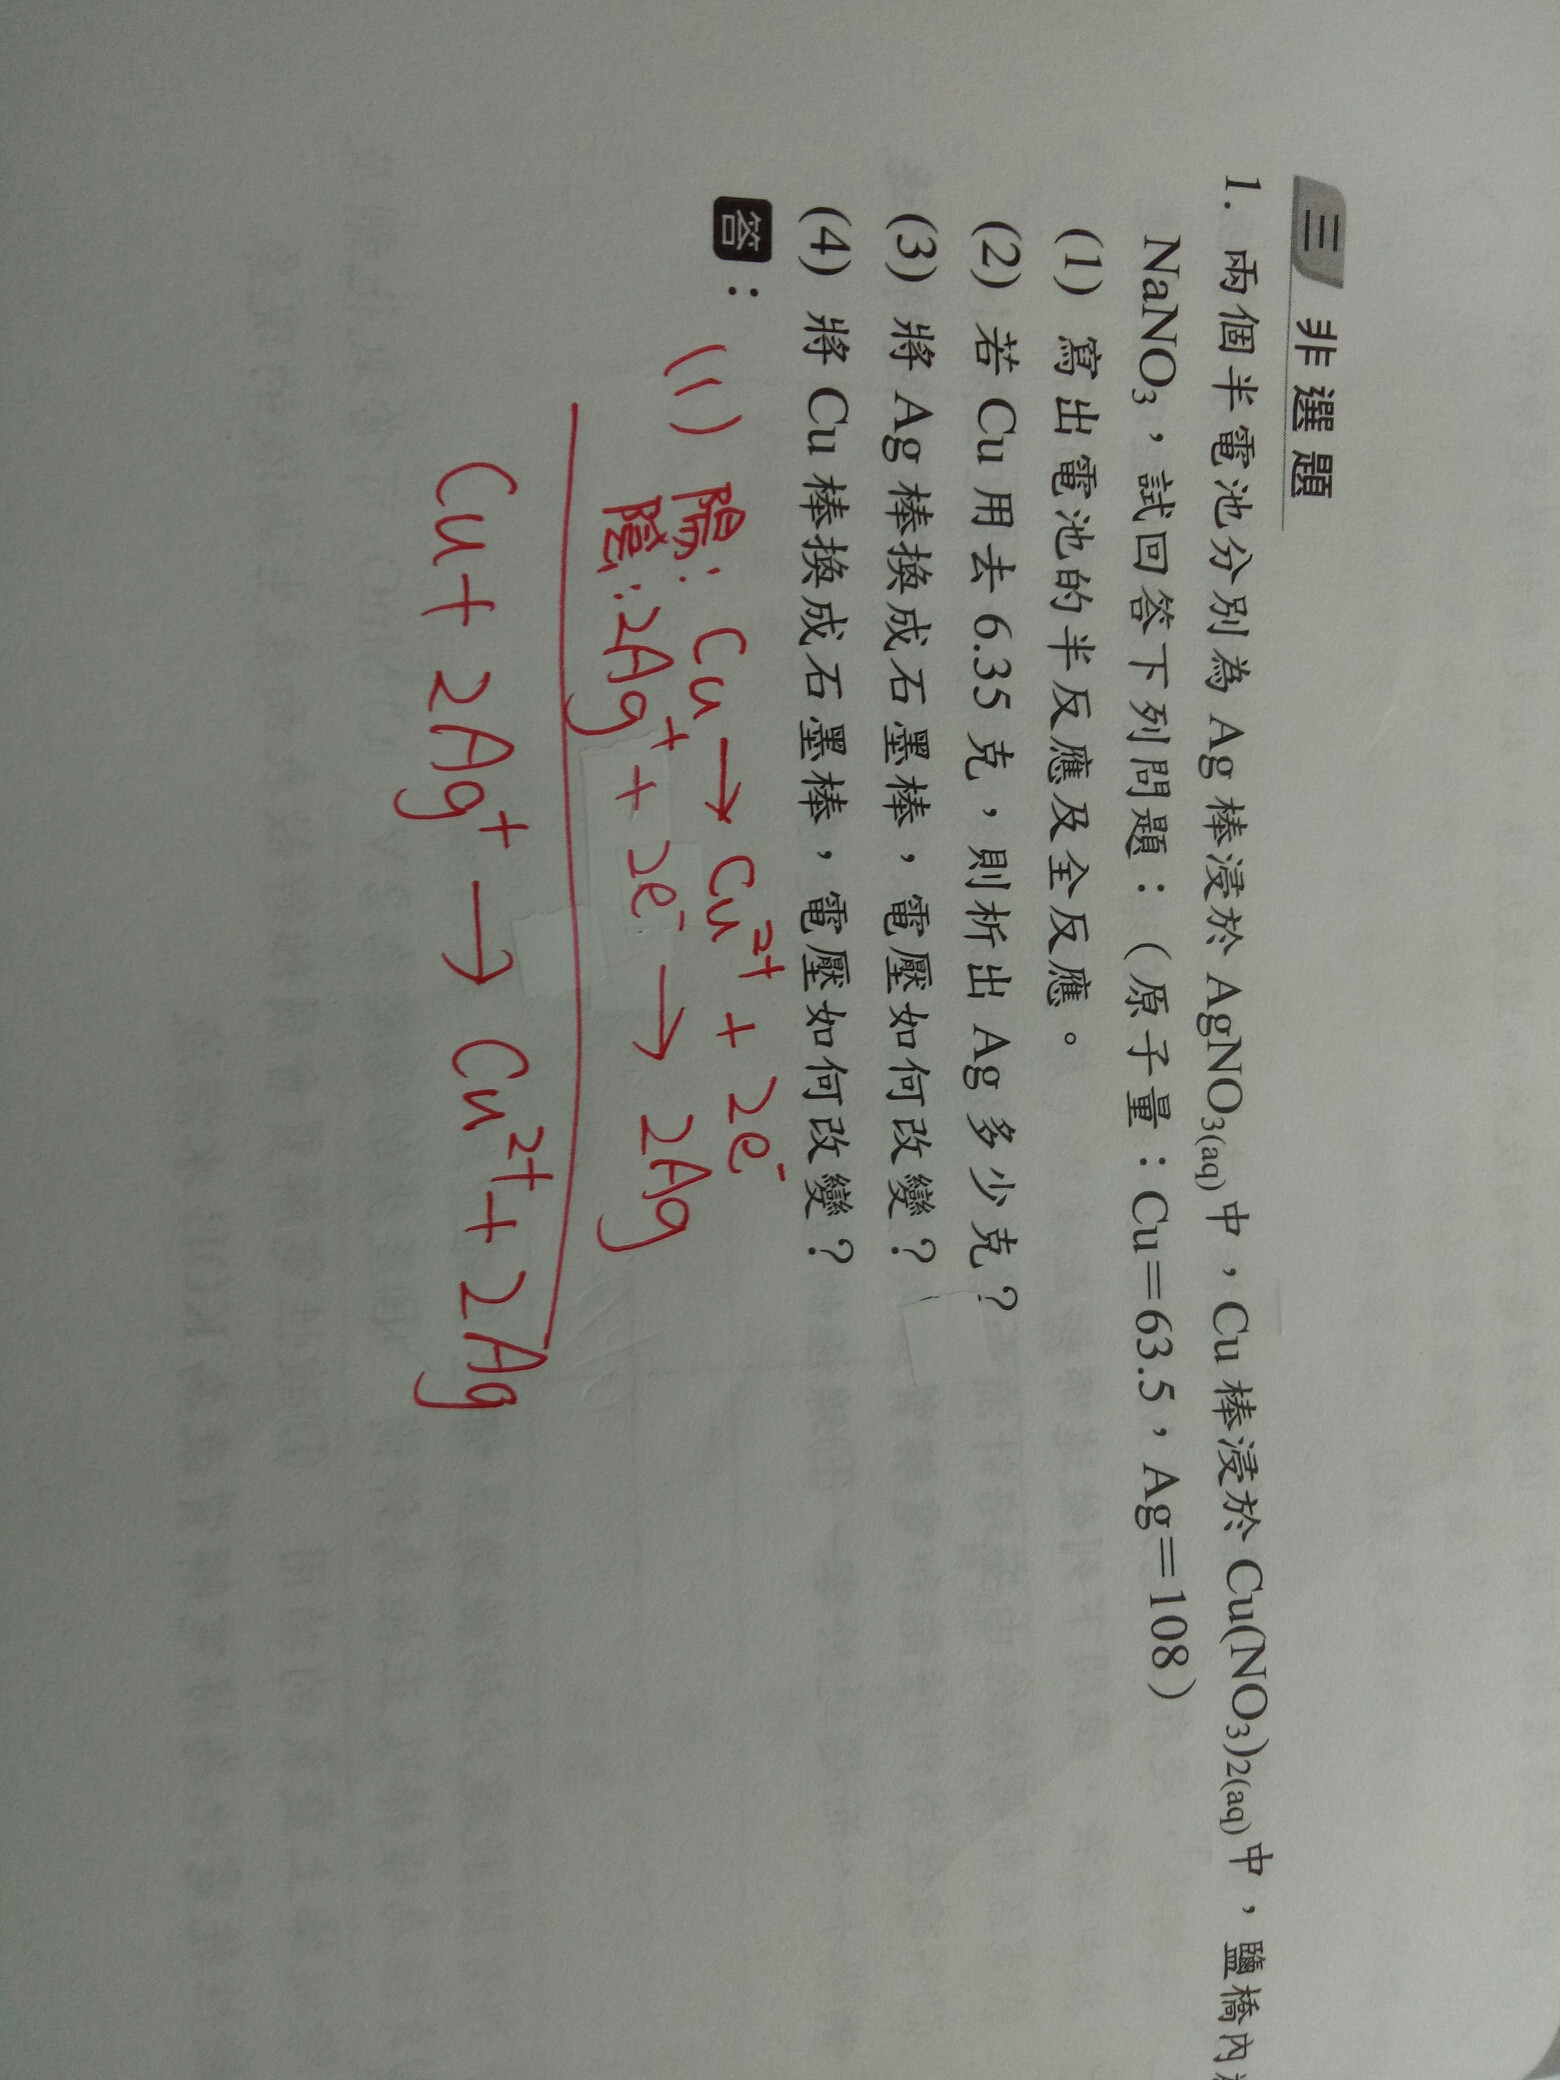 三 非選題
1. 兩個半電池分別為 Ag 棒浸於 AgNO3(aq)中，Cu 棒浸於 Cu(NO3)2(aq)中，鹽橋內
NaNO3，試回答下列問題：（原子量：Cu＝63.5，Ag＝108）
(1) 寫出電池的半反應及全反應。
(2) 若 Cu 用去 6.35 克，則析出 Ag 多少克？
(3) 將 Ag 棒換成石墨棒，電壓如何改變？
(4) 將 Cu 棒換成石墨棒，電壓如何改變？
答：
(1) 陽：Cu → Cu²⁺ + 2e⁻
陰：2Ag⁺ + 2e⁻ → 2Ag
Cu + 2Ag⁺ → Cu²⁺ + 2Ag